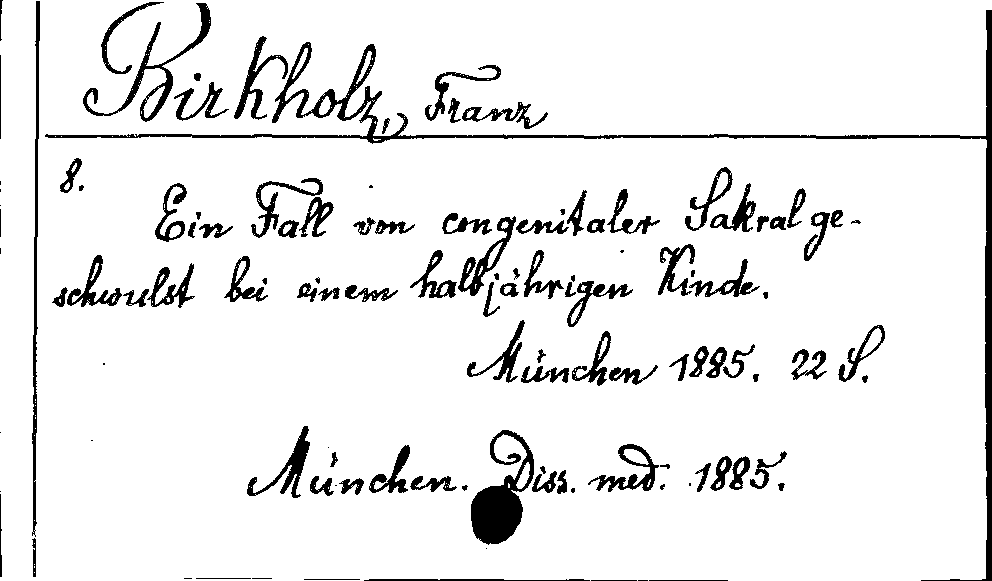 Birkholz, Franz
8.
Ein Fall von congenitaler Sakralge-
schwulst bei einem halbjährigen Kinde.
München 1885. 22 S.
München. Diss. med. 1885.